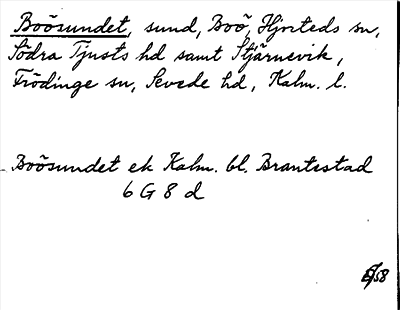 Boösundet, sund, Boö, Hjorteds sn,
Södra Tjusts hd samt Stjärnevik,
Frödinge sn, Sevede hd, Kalm. l.
Boösundet ek Kalm. bl. Brantestad
6 G 8 d